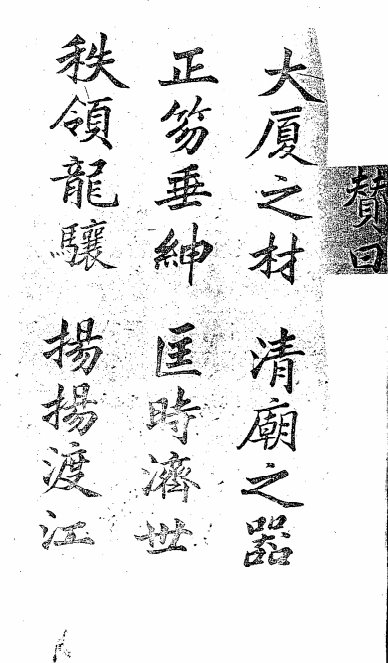 贊曰
大厦之材 清廟之器
正笏垂紳 匡時濟世
秩領龍驤 揚揚渡江